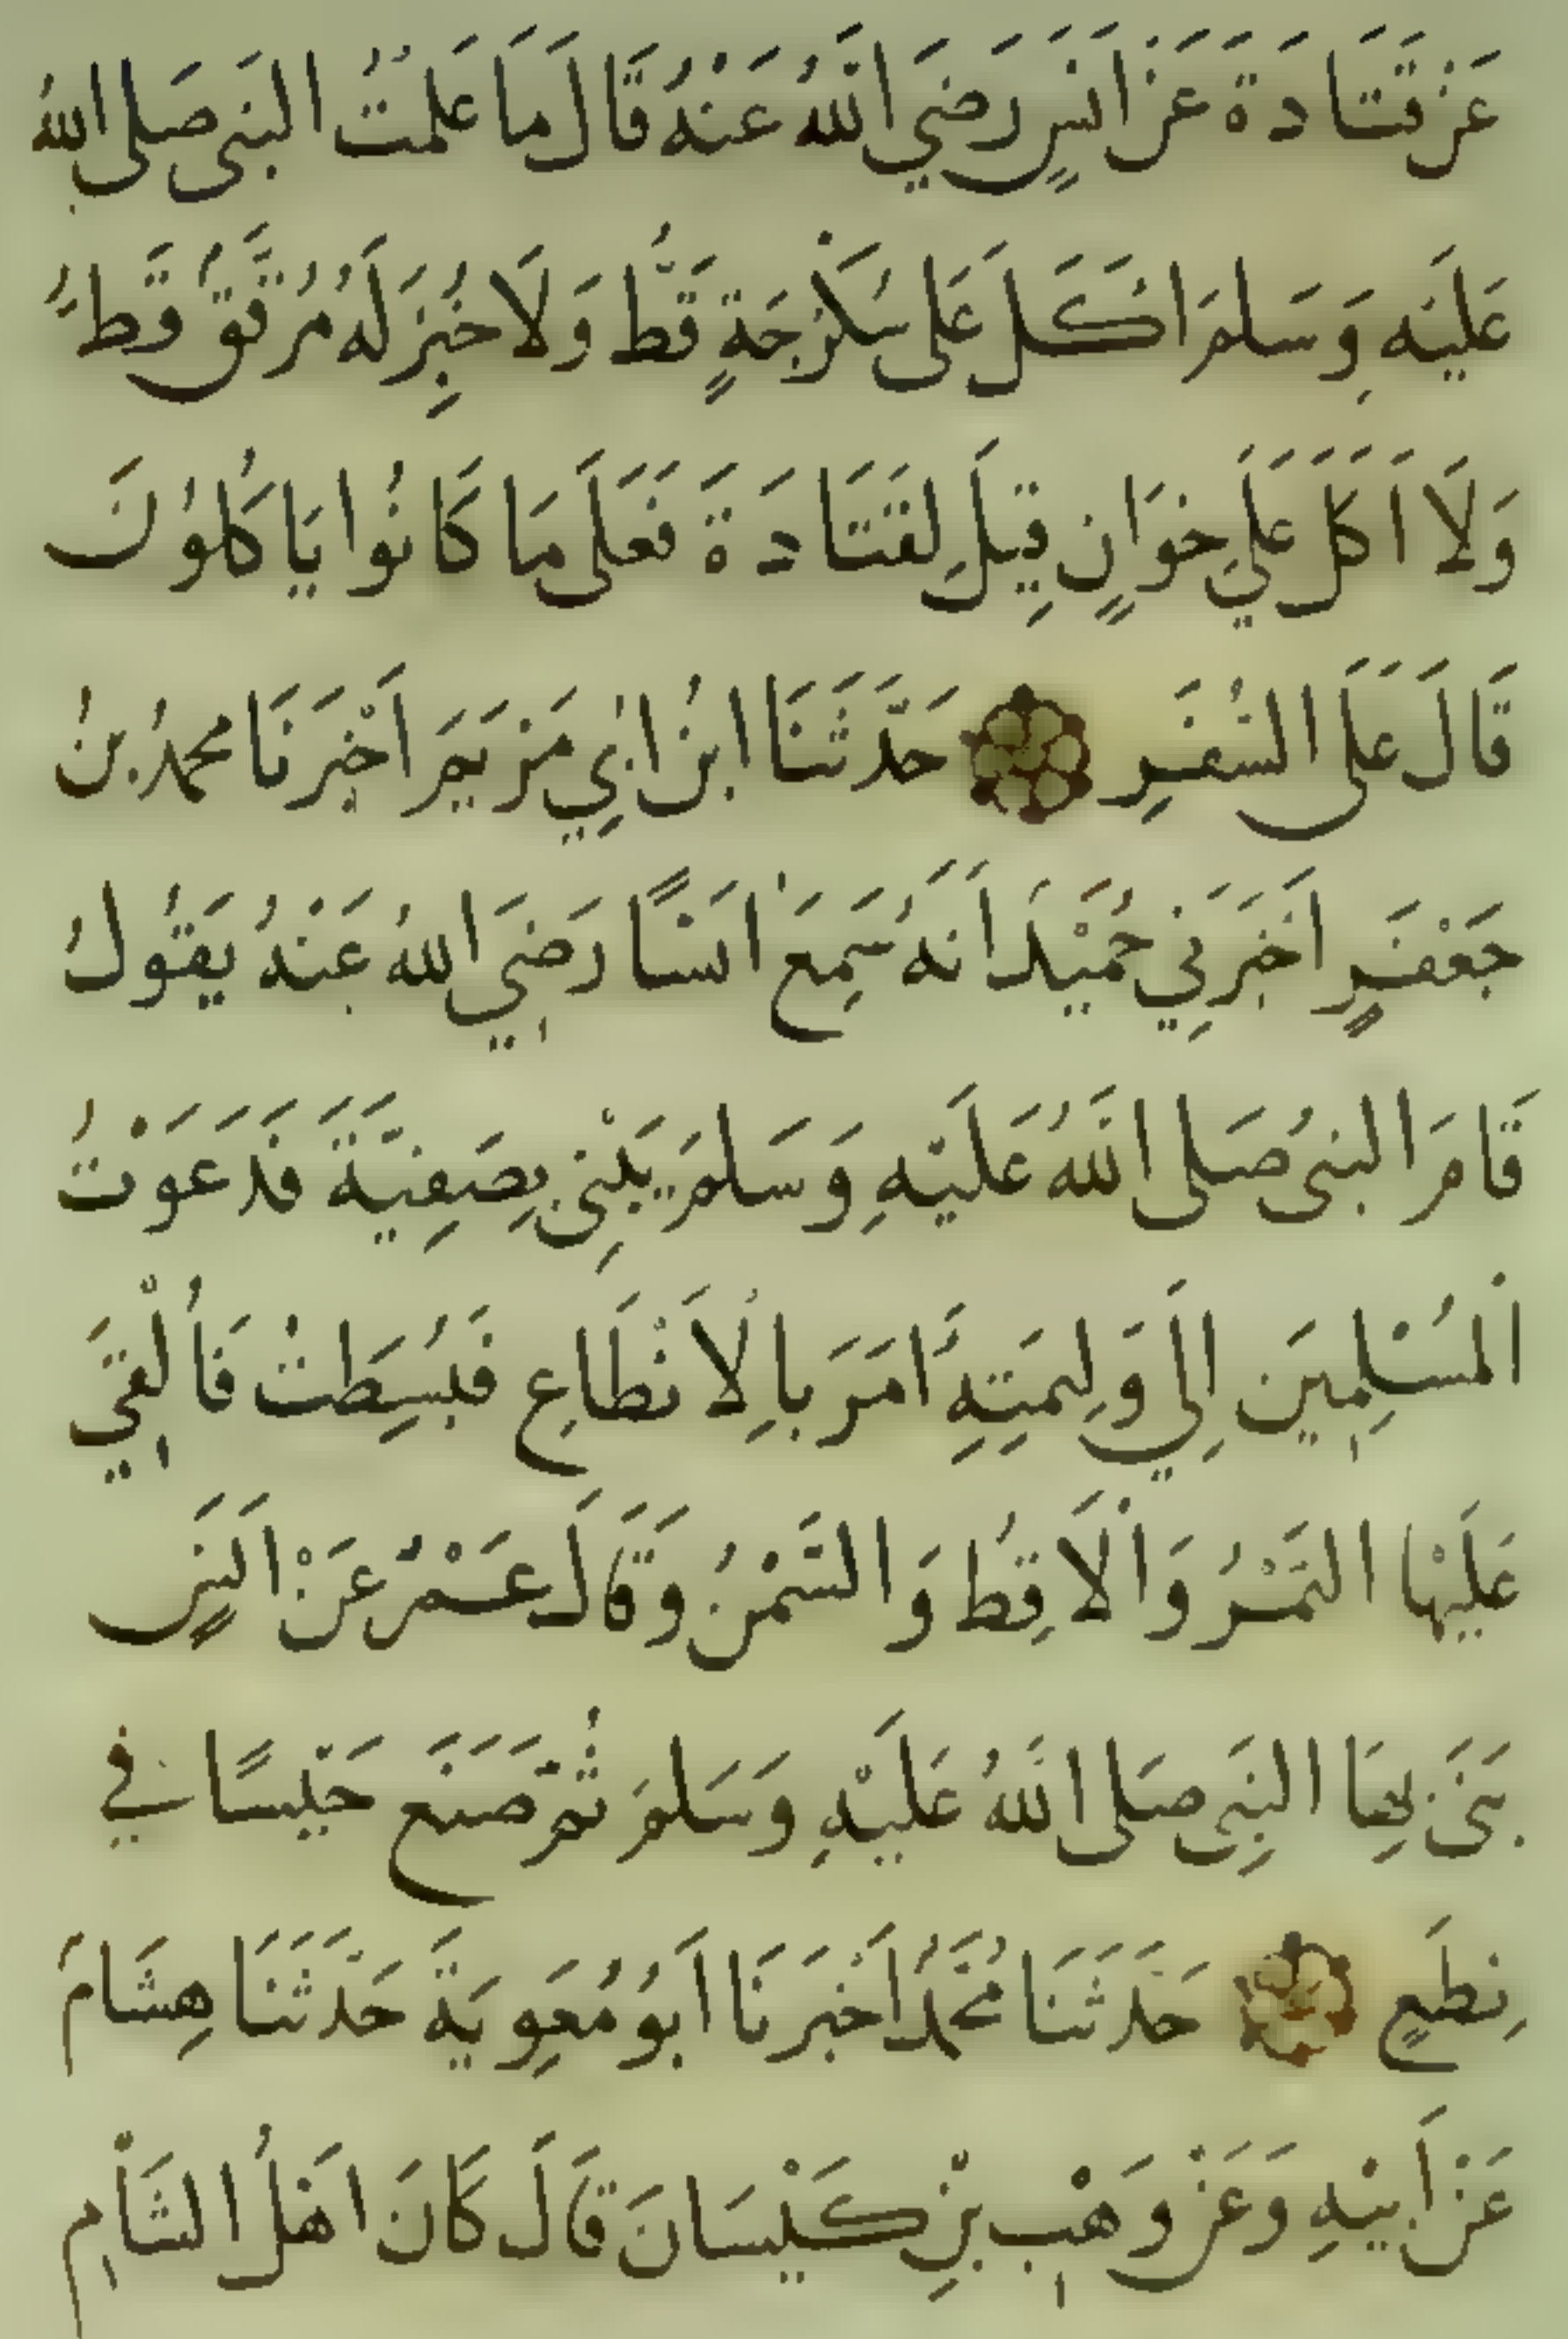 عَنْ قَتَادَةَ عَنْ اَنَسٍ رَضِيَ اللهُ عَنْهُ قَالَ مَا عَلِمْتُ النبى صَلى اللهُ
عَلَيْهِ وَسَلمَ اَكَلَ عَلى سُكْرُجَةٍ قَطُّ وَلَا خُبِزَ لَهُ مُرَقَّقٌ قَطُّ
وَلَا اَكَلَ عَلَي خِوَانٍ قِيلَ لِقَتَادَةَ فَعَلَى مَا كَانُوا يَاكُلُونَ
قَالَ عَلَى السُفَرِ حَدَّثَنَا ابنُ اَبِي مَرْيَمَ اَخْبَرَنَا محمدُ بنُ
جَعْفَرٍ اَخْبَرَنِي حُمَيْدٌ اَنهُ سَمِعَ اَنَسًا رَضِيَ اللهُ عَنْهُ يَقُولُ
قَامَ النبىُ صَلى اللهُ عَلَيْهِ وَسَلمَ يَبْنِى بِصَفِيَّةَ فَدَعَوْتُ
اَلْمُسْلِمِينَ اِلَي وَلِيمَتِهِ اَمَرَ بِالاَنْطَاعِ فَبُسِطَتْ فَأُلْقِيَ
عَلَيْهَا التَمْرُ وَالْاَقِطُ وَالسَّمْنُ وَقَالَ عَمْرٌ عَنْ اَنَسٍ
بَنَى بِهَا النبِى صَلى اللهُ عَلَيْهِ وَسَلمَ ثُمَّ صَنَعَ حَيْسًا في
نِطَعٍ حَدَّثَنَا مُحَمَّدٌ اَخْبَرَنَا اَبُو مُعَوِيَةَ حَدَّثَنَا هِشَام
عَنْ اَبِيْهِ وَعَنْ وَهْبِ بْنِ كَيْسَانَ قَالَ كَانَ اَهْلُ الشَاْمِ